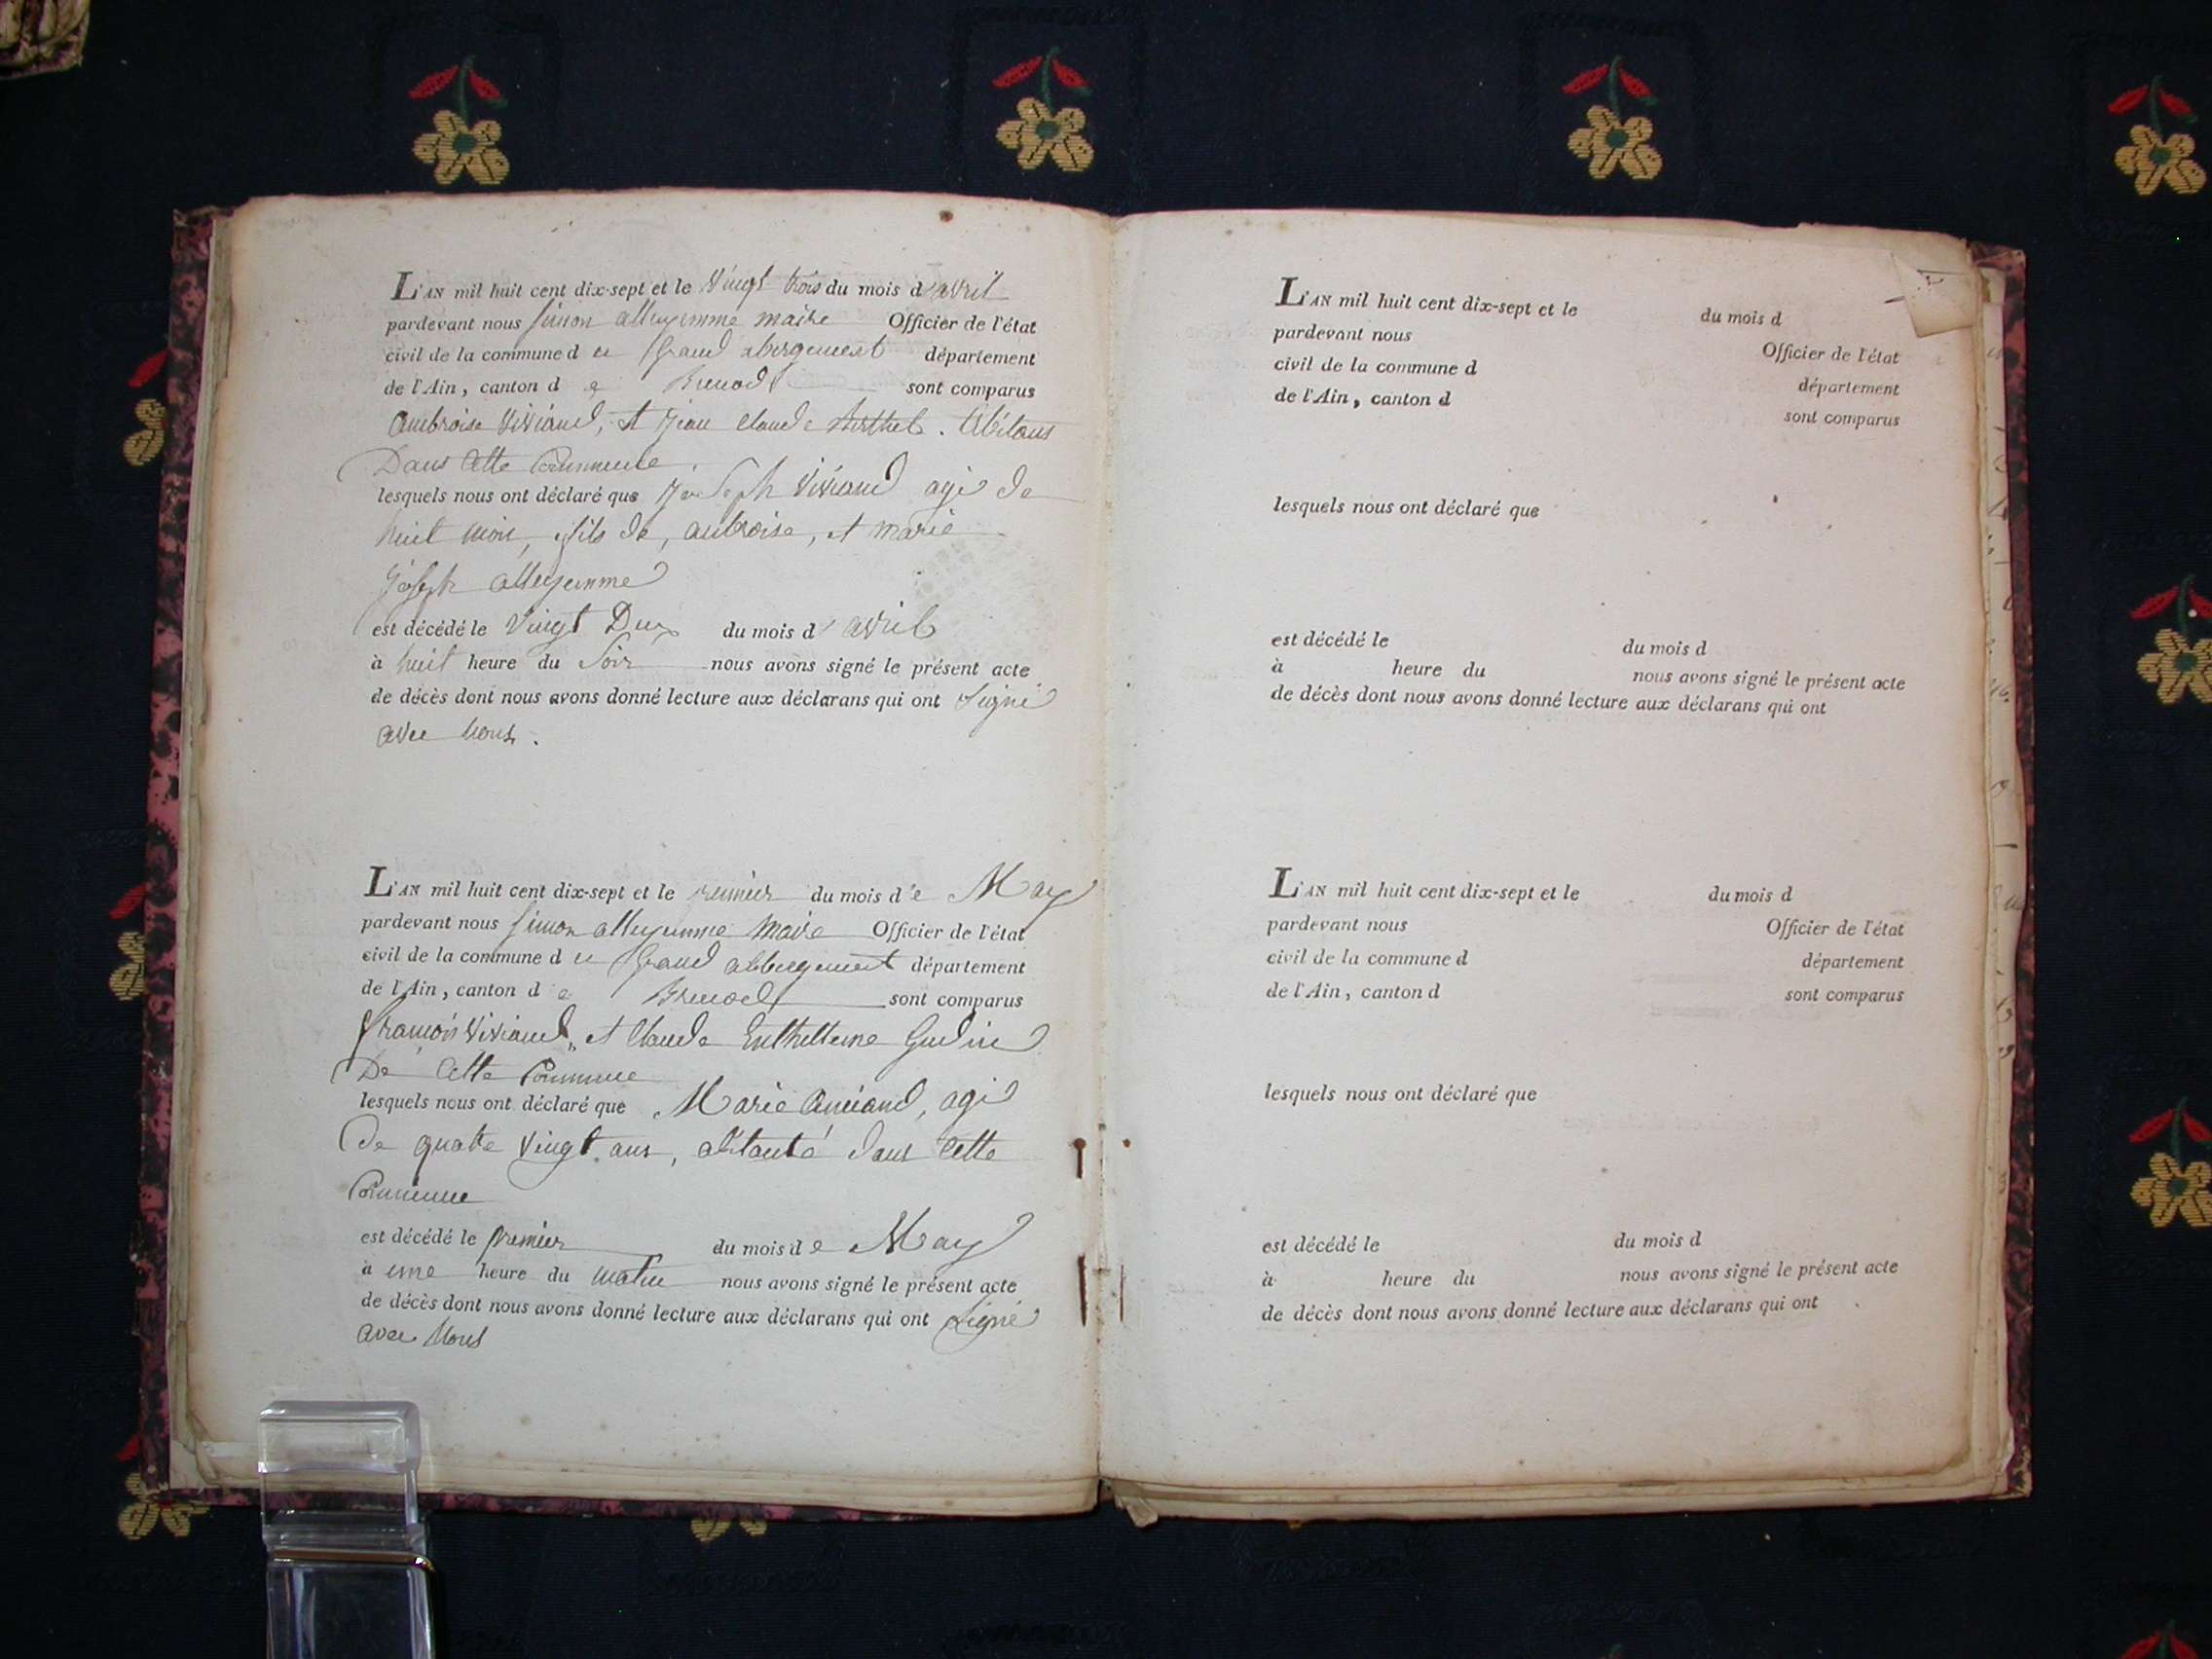 L'AN mil huit cent dix-sept et le vingt trois du mois d'avril
pardevant nous Simon alleyemme maire Officier de l'état
civil de la commune d u Grand abergement département
de l'Ain, canton d e Brenod sont comparus
Ambroise Viviand, et Jean Claude Berthet. Abitans
Dans Cette Commune.
lesquels nous ont déclaré que Joseph Viviand agé de
huit mois, fils de, anbroise, et marie
Joseph alleyemme
est décédé le Vingt Deux du mois d' avril
à huit heure du Soir nous avons signé le présent acte
de décès dont nous avons donné lecture aux déclarans qui ont Signé
avec Nous.
L'AN mil huit cent dix-sept et le premier du mois d e May
pardevant nous Simon alleyemme Maire Officier de l'état
civil de la commune d u Grand abbergement département
de l'Ain, canton d e Brenod sont comparus
Viviand, et Claude
De Cette Commune
lesquels nous ont déclaré que Marie agé
De quatre Vingt ans, abitante dans Cette
Commune
est décédé le premier du mois d e May
à une heure du matin nous avons signé le présent acte
de décès dont nous avons donné lecture aux déclarans qui ont Signé
avec Nous
L'AN mil huit cent dix-sept et le du mois d
pardevant nous Officier de l'état
civil de la commune d département
de l'Ain, canton d sont comparus
lesquels nous ont déclaré que
est décédé le du mois d
à heure du nous avons signé le présent acte
de décès dont nous avons donné lecture aux déclarans qui ont
L'AN mil huit cent dix-sept et le du mois d
pardevant nous Officier de l'état
civil de la commune d département
de l'Ain, canton d sont comparus
lesquels nous ont déclaré que
est décédé le du mois d
à heure du nous avons signé le présent acte
de décès dont nous avons donné lecture aux déclarans qui ont